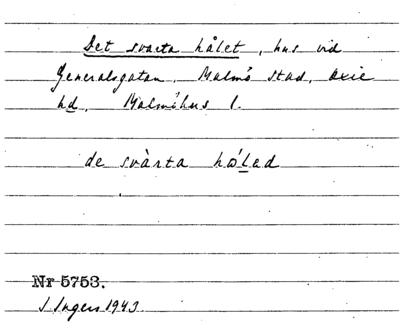 Det svarta hålet, hus vid
Generalsgatan, Malmö stad, Oxie
hd, Malmöhus l.
de svàrta hó̀lad
Nr 5753.
I Ingers 1943